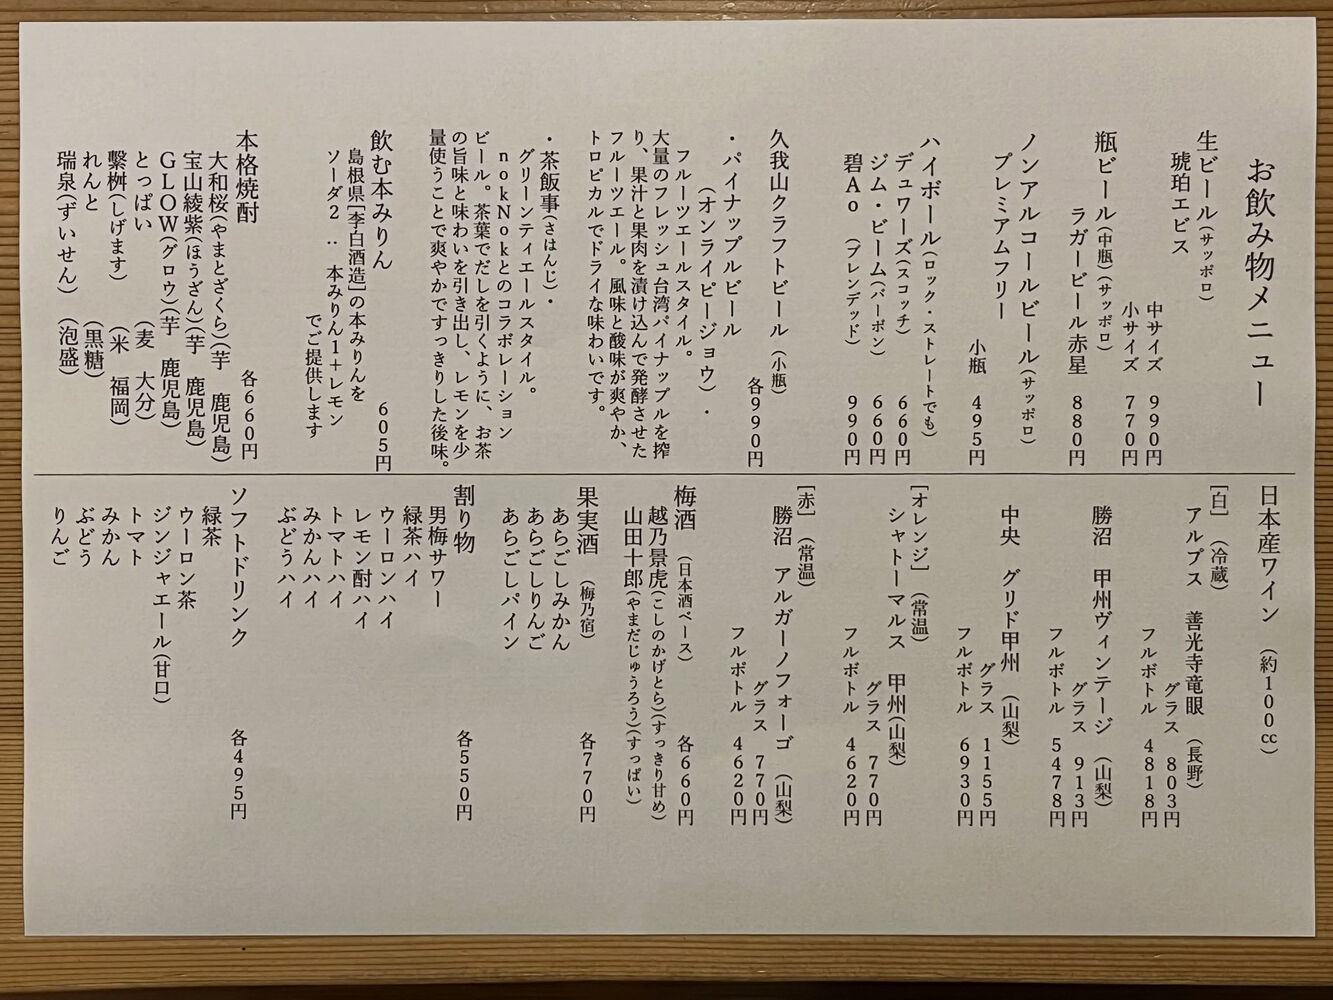 お飲み物メニュー
生ビール(サッポロ)
琥珀エビス
中サイズ 990円
小サイズ 770円
瓶ビール(中瓶)(サッポロ)
ラガービール赤星 880円
ノンアルコールビール(サッポロ)
プレミアムフリー
小瓶 495円
ハイボール(ロック・ストレートでも)
デュワーズ(スコッチ) 660円
ジム・ビーム(バーボン) 660円
碧Ao (ブレンデッド) 990円
久我山クラフトビール(小瓶)
各990円
・パイナップルビール
(オンライピージョウ)・
フルーツエールスタイル。
大量のフレッシュ台湾パイナップルを搾
り、果汁と果肉を漬け込んで発酵させた
フルーツエール。風味と酸味が爽やか、
トロピカルでドライな味わいです。
・茶飯事(さはんじ)・
グリーンティエールスタイル。
nokNokとのコラボレーション
ビール。茶葉でだしを引くように、お茶
の旨味と味わいを引き出し、レモンを少
量使うことで爽やかですっきりした後味。
飲む本みりん 605円
島根県[李白酒造]の本みりんを
ソーダ2:本みりん1+レモン
でご提供します
本格焼酎 各660円
大和桜(やまとざくら)(芋 鹿児島)
宝山綾紫(ほうざん)(芋 鹿児島)
GLOW(グロウ)(芋 鹿児島)
とっぱい (麦 大分)
繫桝(しげます) (米 福岡)
れんと (黒糖)
瑞泉(ずいせん) (泡盛)
日本産ワイン (約100cc)
[白](冷蔵)
アルプス 善光寺竜眼(長野)
グラス 803円
フルボトル 4818円
勝沼 甲州ヴィンテージ(山梨)
グラス 913円
フルボトル 5478円
中央 グリド甲州(山梨)
グラス 1155円
フルボトル 6930円
[オレンジ](常温)
シャトーマルス 甲州(山梨)
グラス 770円
フルボトル 4620円
[赤](常温)
勝沼 アルガーノフォーゴ(山梨)
グラス 770円
フルボトル 4620円
梅酒 (日本酒ベース) 各660円
越乃景虎(こしのかげとら)(すっきり甘め)
山田十郎(やまだじゅうろう)(すっぱい)
果実酒 (梅乃宿) 各770円
あらごしみかん
あらごしりんご
あらごしパイン
割り物 各550円
男梅サワー
緑茶ハイ
ウーロンハイ
レモン酎ハイ
トマトハイ
みかんハイ
ぶどうハイ
ソフトドリンク 各495円
緑茶
ウーロン茶
ジンジャエール(甘口)
トマト
みかん
ぶどう
りんご